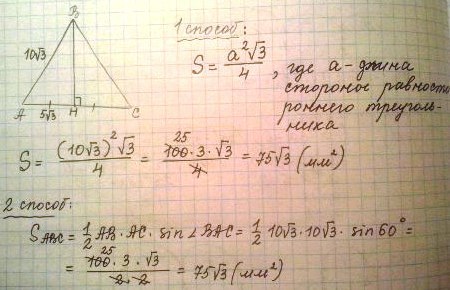 B
1 способ:
10√3
S = a²√3/4, где a - длина
стороное равносто
роннего треуголь-
ника
A 5√3 H C
S = (10√3)²√3/4 = 25 100·3·√3/4 = 75√3 (мм²)
2 способ:
S ABC = 1/2 AB·AC·sin∠BAC = 1/2 10√3·10√3·sin60° =
= 25 100·3·√3/2·2 = 75√3 (мм²)